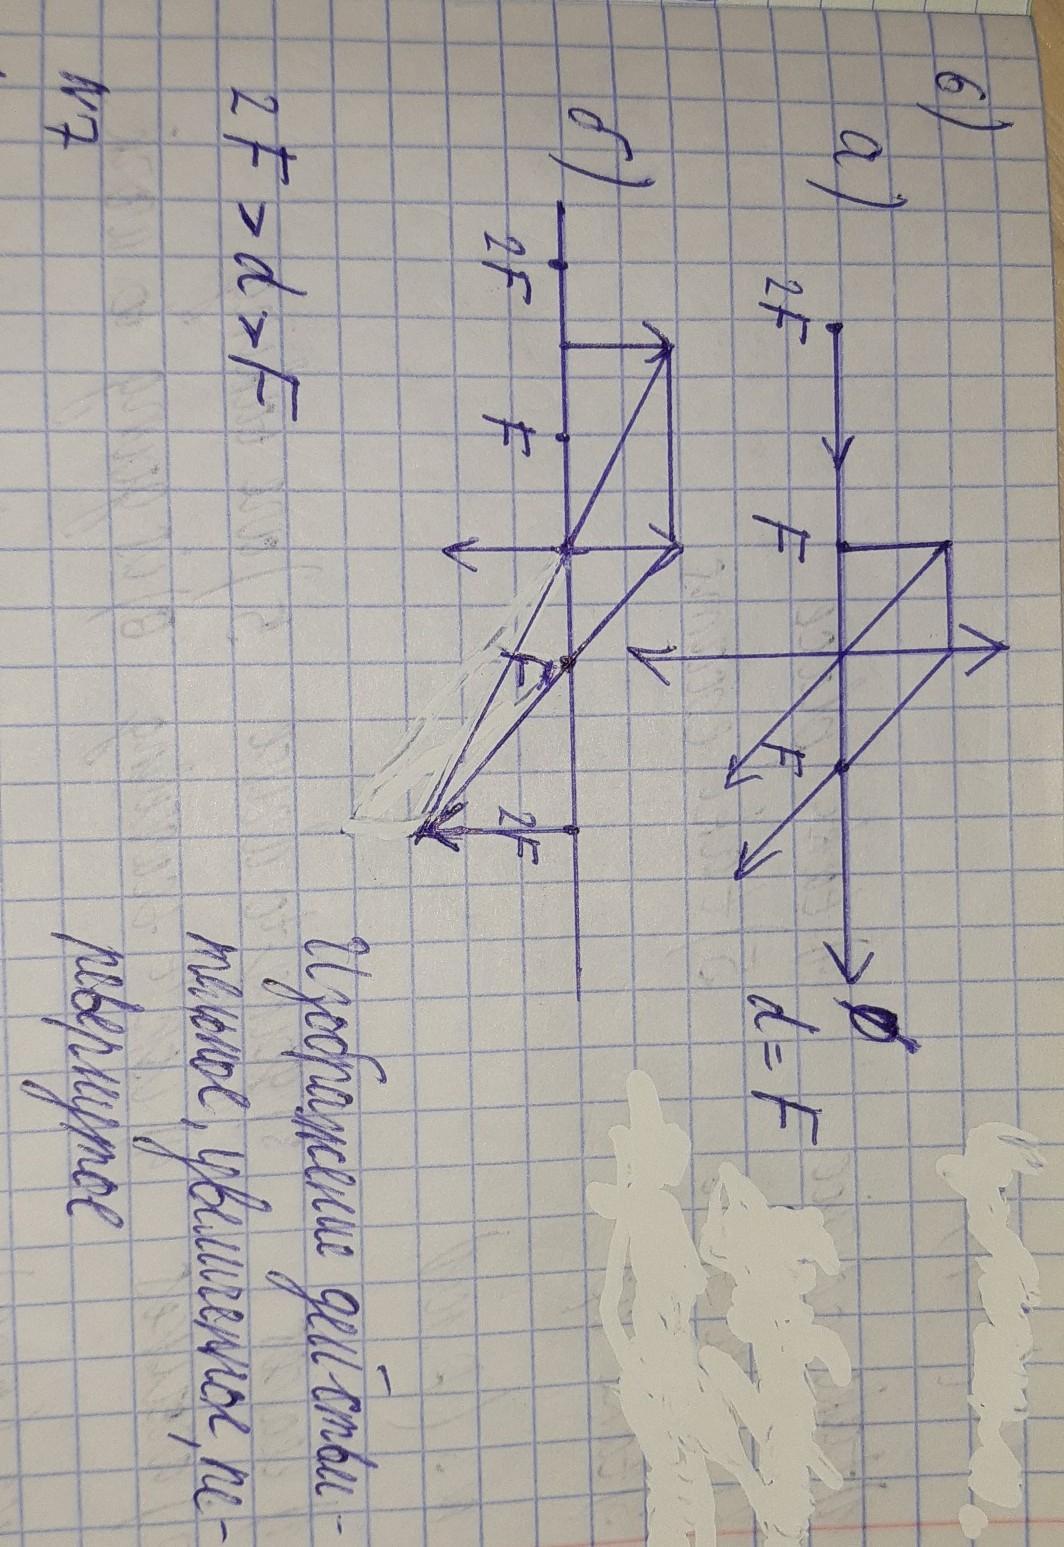 6)
а)
2F F F
d = F
б)
2F F F 2F
2F > d > F
Изображение действи-
тельное, увеличенное, пе-
ревернутое
№7